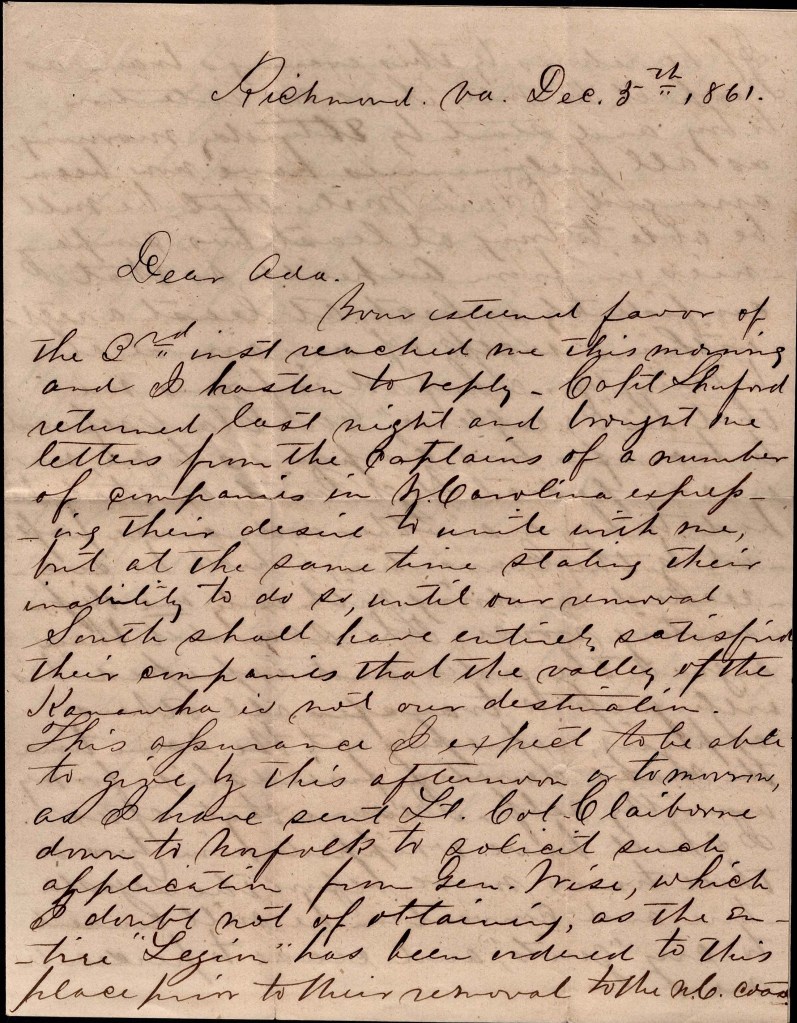 Richmond. Va. Dec. 5th, 1861.
Dear Ada.
Your esteemed favor of
the 3rd inst reached me this morning
and I hasten to reply - Capt Shuford
returned last night and brought me
letters from the Captains of a number
of companies in N. Carolina express-
-ing their desire to unite with me,
but at the same time stating their
inability to do so, until our removal
South shall have entirely satisfied
their companies that the valley of the
Kanawha is not our destination.
This assurance I expect to be able
to give by this afternoon or tomorrow,
as I have sent Lt. Col. Claiborne
down to Norfolk to solicit such
application from Gen. Wise, which
I doubt not of obtaining, as the en-
-tire "Legion" has been ordered to this
place prior to their removal to the N.C. coast